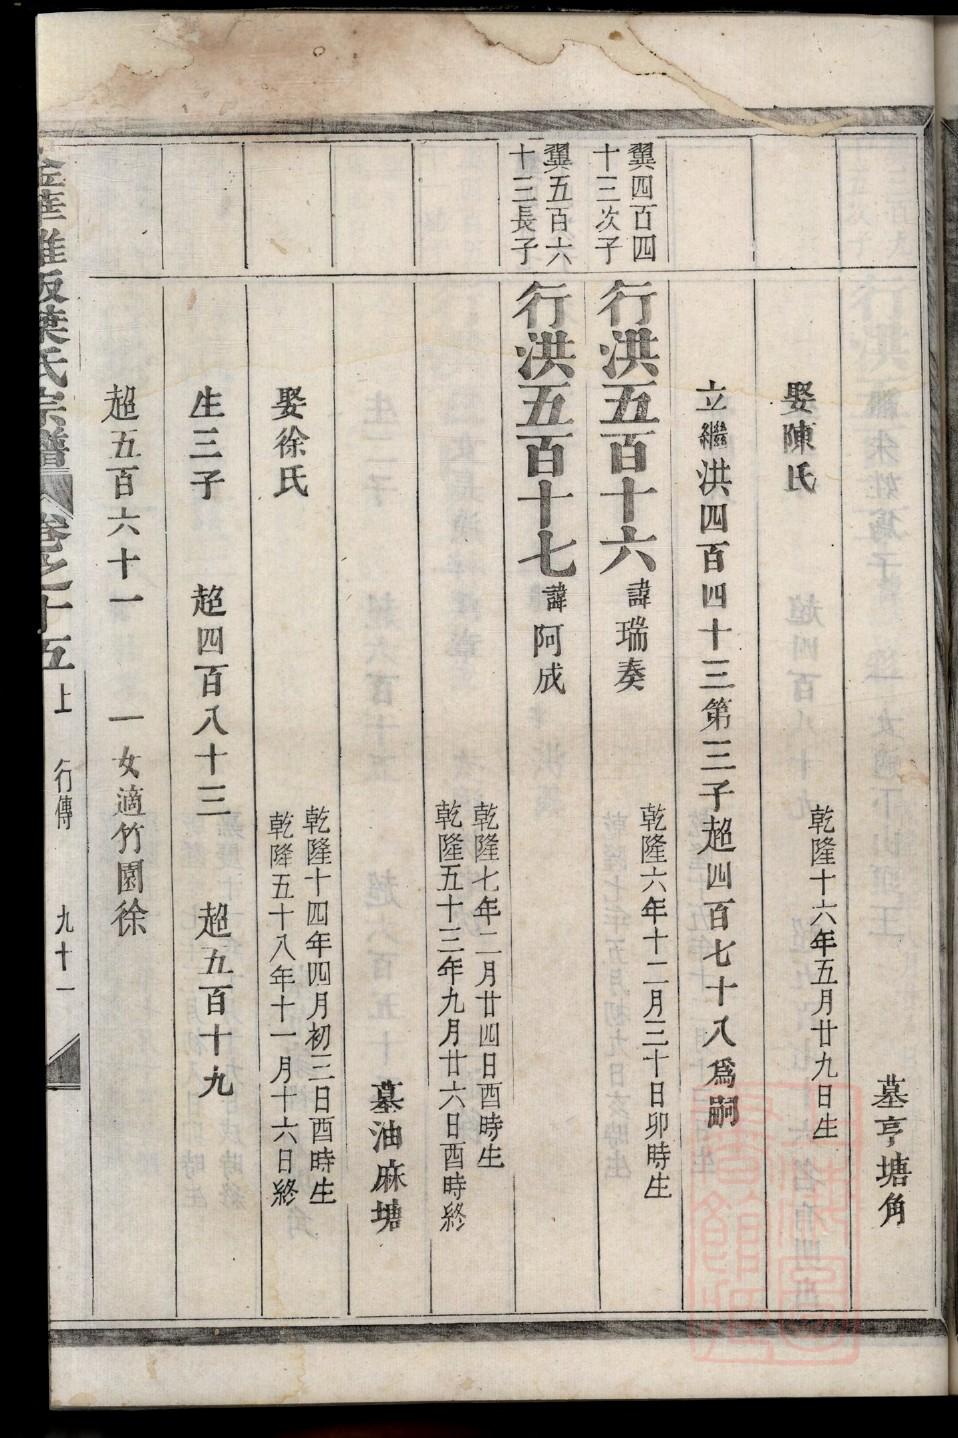 墓亨塘角
娶陳氏
乾隆十六年五月廿九日生
立繼洪四百四十三第三子超四百七十八爲嗣
翼四百四
十三次子
行洪五百十六
諱瑞奏
乾隆六年十二月三十日卯時生
翼五百六
十三長子
行洪五百十七
諱阿成
乾隆七年二月廿四日酉時生
乾隆五十三年九月廿六日酉時終
墓油麻塘
娶徐氏
乾隆十四年四月初三日酉時生
乾隆五十八年十一月十六日終
生三子
超四百八十三
超五百十九
超五百六十一
一女適竹園徐
金華雅畈葉氏宗譜
卷之十五
上
行傳
九十一